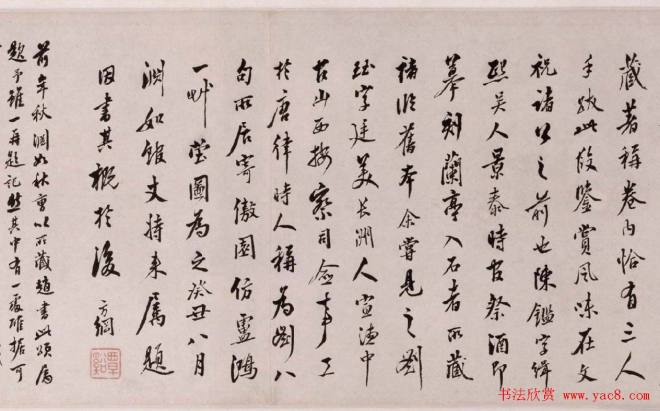 藏著稱卷內恰有三人
手跋此段鑒賞風味在文
祝諸公之前也陳鑑字緝
熙吳人景泰時官祭酒即
摹刻蘭亭入石者所藏
褚臨舊本余嘗見之劉
珏字廷美長洲人宣德中
官山西按察司僉事工
於唐律時人稱為劉八
句所居寄傲園仿盧鴻
一艸堂圖為之癸丑八月
淵如館丈持來屬題
因書其概於後 方綱
覃谿
前年秋淵如秋曹以所藏趙書此頌屬
題予雖一再題記然其中有一處確據可
书法欣赏
www.yac8.com